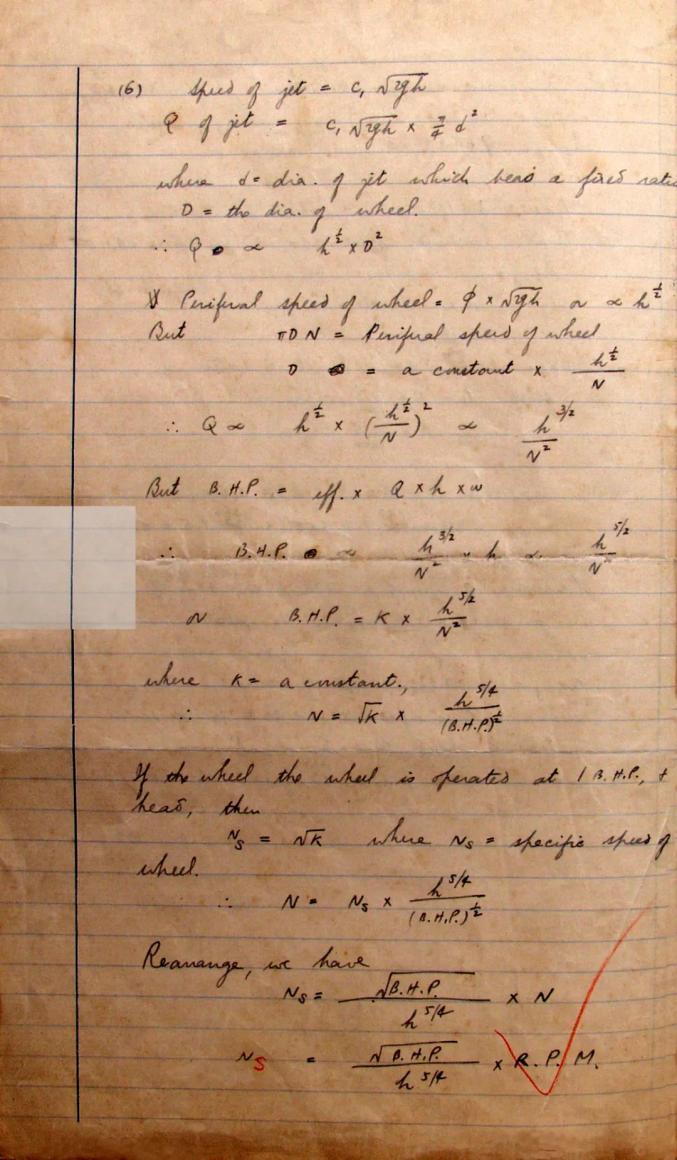 (6) Speed of jet = c₁ √2gh
Q of jet = c₁ √2gh × π/4 d²
where d = dia. of jet which bears a fixed ratio
D = the dia. of wheel.
∴ Q ∝ h^½ × D²
Periferal speed of wheel = φ × √2gh or ∝ h^½
But πDN = Periferal speed of wheel
D = a constant × h^½/N
∴ Q ∝ h^½ × (h^½/N)² ∝ h^3/2/N²
But B.H.P. = eff. × Q × h × w
∴ B.H.P. ∝ h^3/2/N² × h ∝ h^5/2/N²
or B.H.P. = K × h^5/2/N²
where K = a constant.,
∴ N = √K × h^5/4/(B.H.P.)^½
If the wheel the wheel is operated at 1 B.H.P.,
head, then
N_s = √K where N_s = specific speed of
wheel.
∴ N = N_s × h^5/4/(B.H.P.)^½
Rearrange, we have
N_s = √B.H.P./h^5/4 × N
N_s = √B.H.P./h^5/4 × R.P.M.